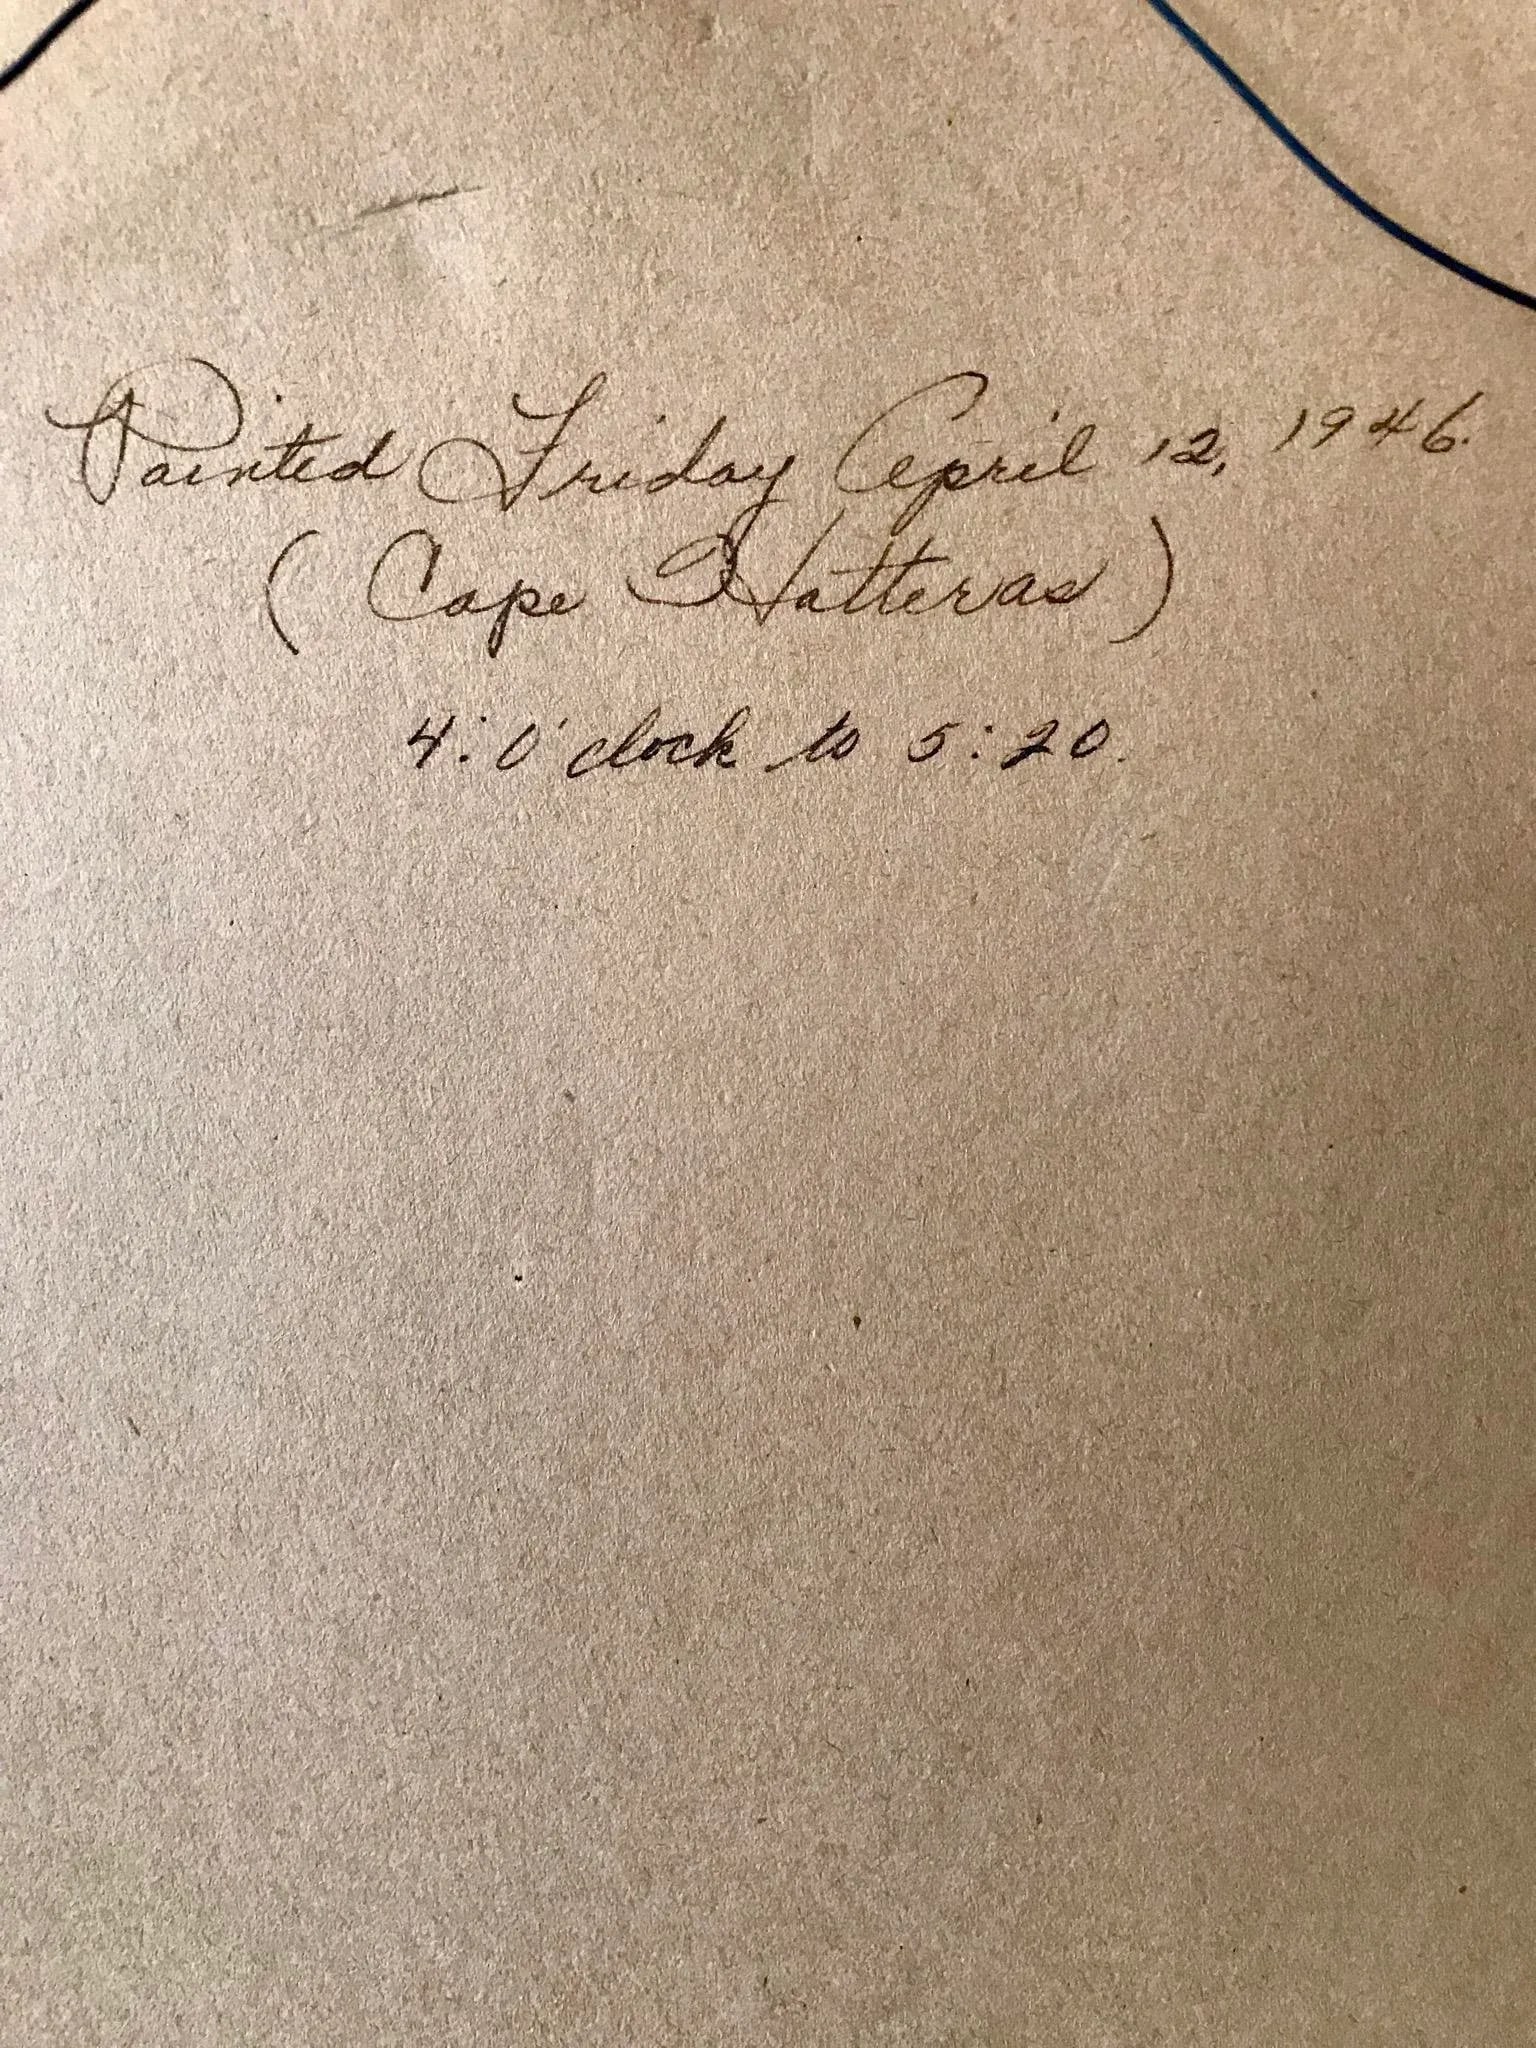 Painted Friday April 12, 1946.
( Cape Hatteras )
4: O'clock to 5:20.